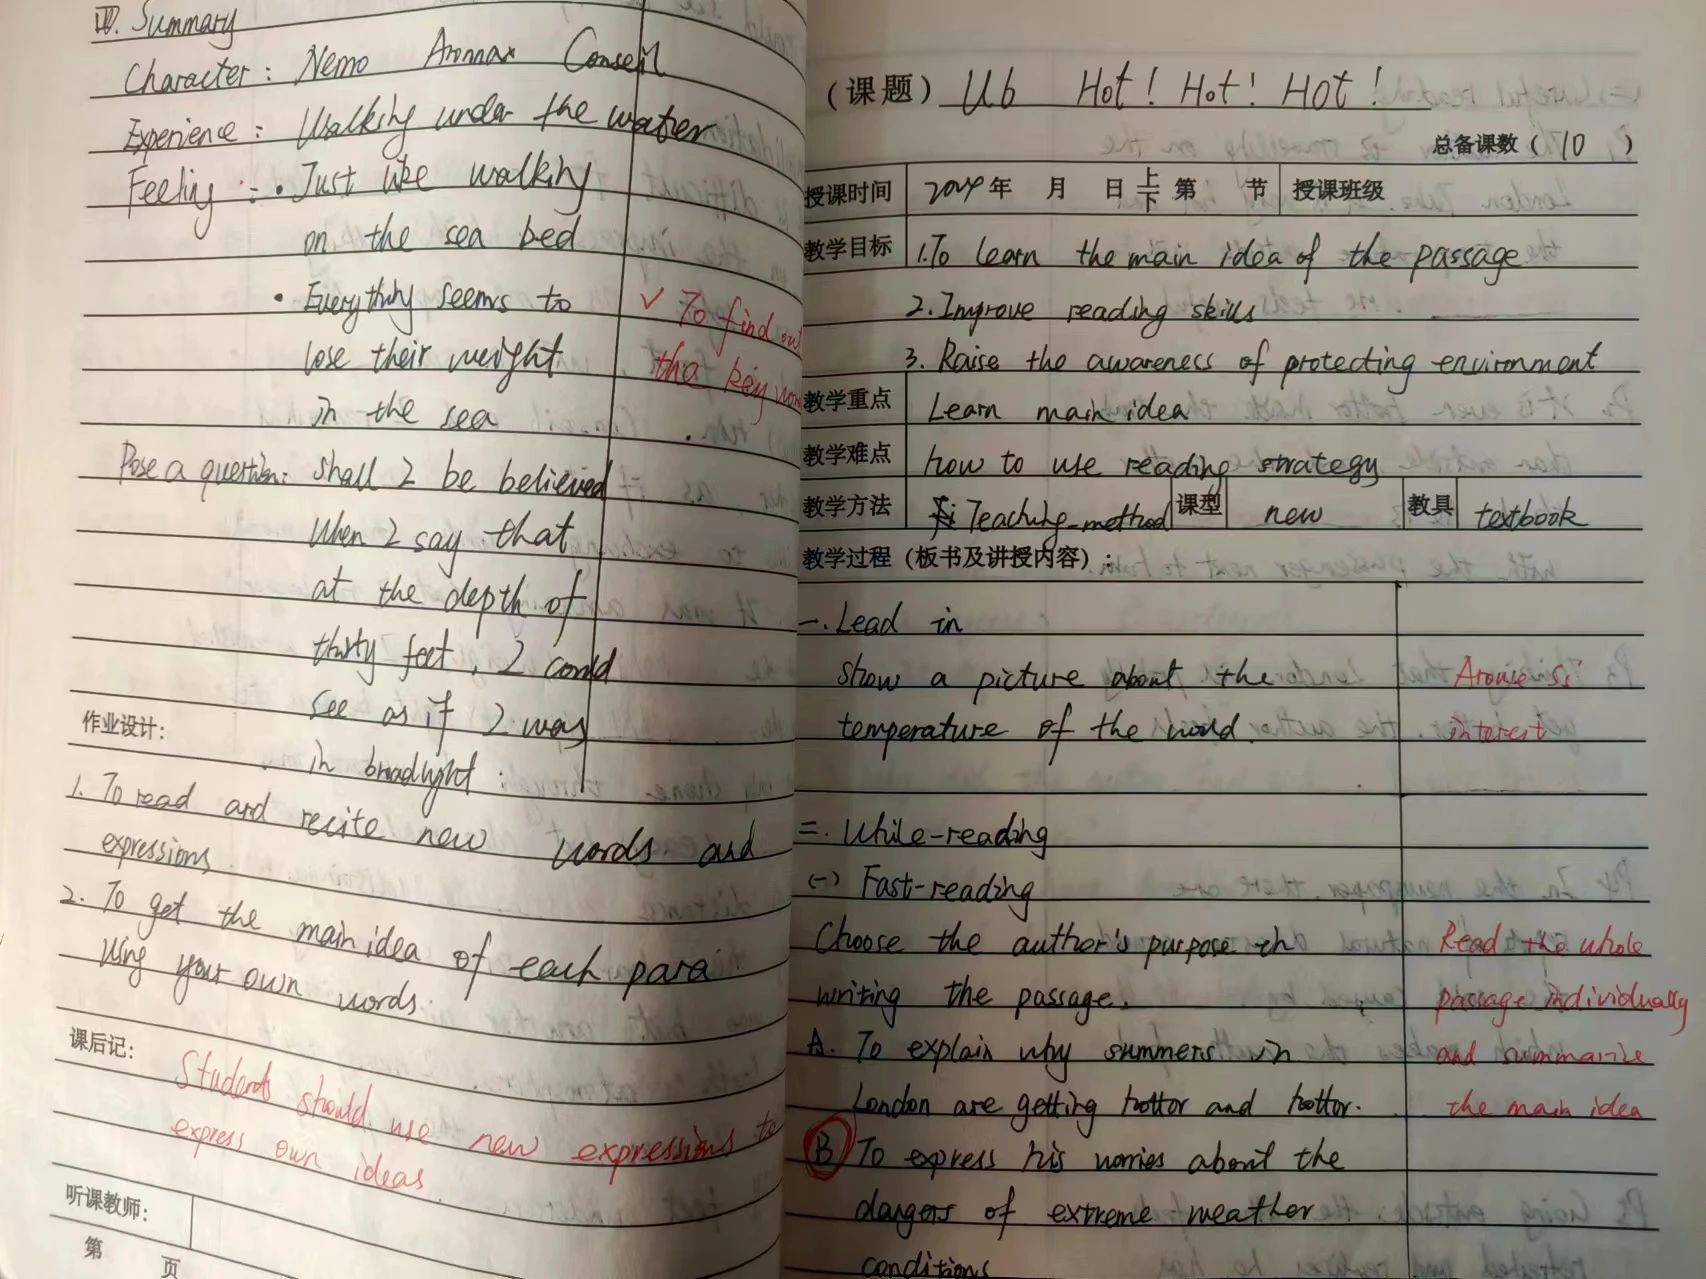 Ⅳ. Summary
Character: Nemo Aronnax Conseil
Experience: Walking under the water
Feeling: • Just like walking
on the sea bed
• Everything seems to
lose their weight
in the sea
✓ To find out
the key
Pose a question: shall I be believed
when I say that
at the depth of
thirty feet, I could
see as if I was
in broadlight:
作业设计:
1. To read and recite new words and
expressions.
2. To get the main idea of each para
using your own words.
课后记:
Students should use new expressions to
express own ideas.
听课教师:
第 页
(课题) U6 Hot! Hot! Hot!
总备课数(10)
授课时间 2024年 月 日 上下 第 节 授课班级
教学目标 1.To learn the main idea of the passage
2.Improve reading skills
3. Raise the awareness of protecting environment
教学重点 Learn main idea
教学难点 how to use reading strategy
教学方法 Teaching-method 课型 new 教具 textbook
教学过程(板书及讲授内容):
一. Lead in
show a picture about the
temperature of the world.
interest
二. While-reading
(一) Fast-reading
Choose the author's purpose in
writing the passage.
A. To explain why summers in
London are getting hotter and hotter.
B To express his worries about the
dangers of extreme weather
conditions
Read the whole
passage individually
and summarize
the main idea